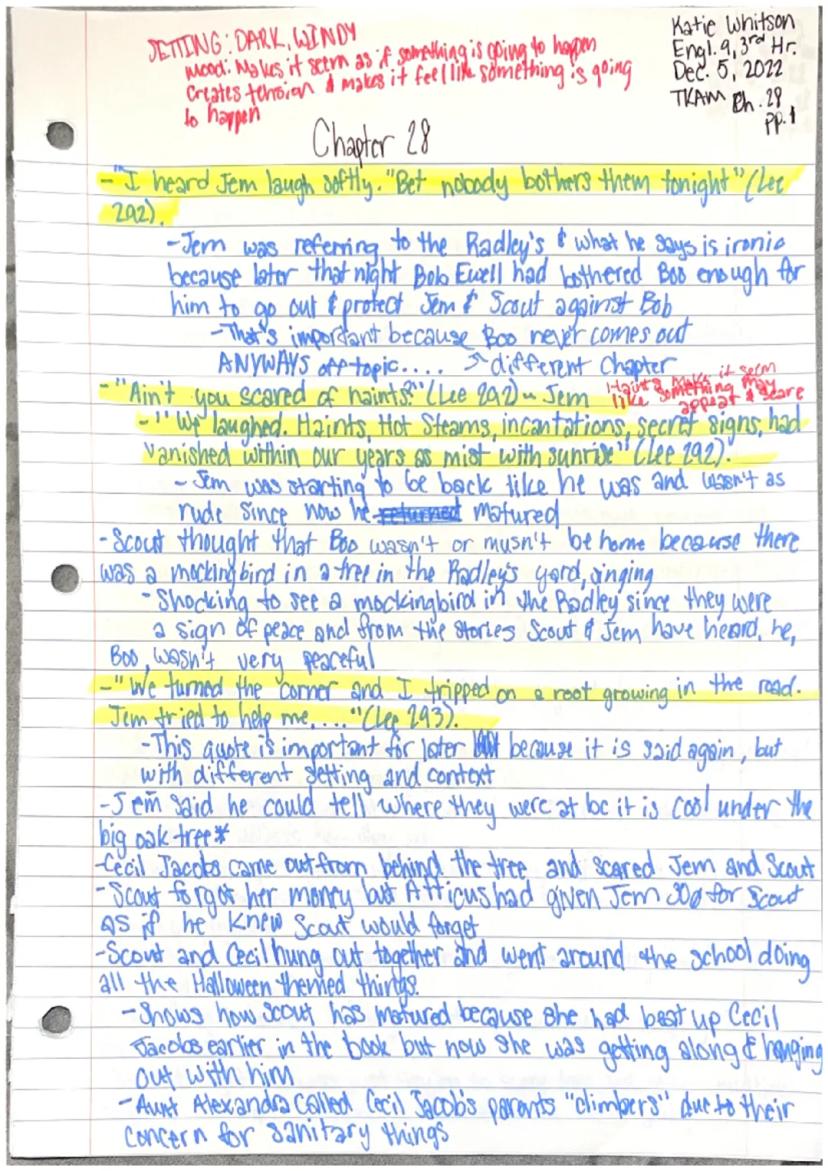 SETTING: DARK, WINDY
Mood: Makes it seem as if something is going to happen
Creates tension & makes it feel like something is going
to happen
Katie Whitson
Engl. 9, 3rd Hr.
Dec. 5, 2022
TKAM Ch. 28
pp. 1
Chapter 28
- "I heard Jem laugh softly. "Bet nobody bothers them tonight" (Lee
292).
- Jem was referring to the Radley's & what he says is ironic
because later that night Bob Ewell had bothered Boo enough for
him to go out & protect Jem & Scout against Bob
- That's important because Boo never comes out
ANYWAYS off topic.... different Chapter
- "Ain't you scared of haints?" (Lee 292) ~ Jem
Haints make it seem
like something may
appear & scare
- "We laughed. Haints, Hot Steams, incantations, secret signs, had
vanished within our years as mist with sunrise" (Lee 292).
- Jem was starting to be back like he was and wasn't as
rude since now he returned matured
- Scout thought that Boo wasn't or musn't be home because there
was a mockingbird in a tree in the Radley's yard, singing
- Shocking to see a mockingbird in the Radley since they were
a sign of peace and from the stories Scout & Jem have heard, he,
Boo, wasn't very peaceful
- "We turned the corner and I tripped on a root growing in the road.
Jem tried to help me,...." (Lee 293).
- This quote is important for later because it is said again, but
with different setting and context
- Jem said he could tell where they were at bc it is cool under the
big oak tree*
- Cecil Jacobs came out from behind the tree and scared Jem and Scout
- Scout forgot her money but Atticus had given Jem 30¢ for Scout
as if he knew Scout would forget
- Scout and Cecil hung out together and went around the school doing
all the Halloween themed things.
- Shows how Scout has matured because she had beat up Cecil
Jacobs earlier in the book but now she was getting along & hanging
out with him
- Aunt Alexandra called Cecil Jacob's parents "climbers" due to their
concern for sanitary things